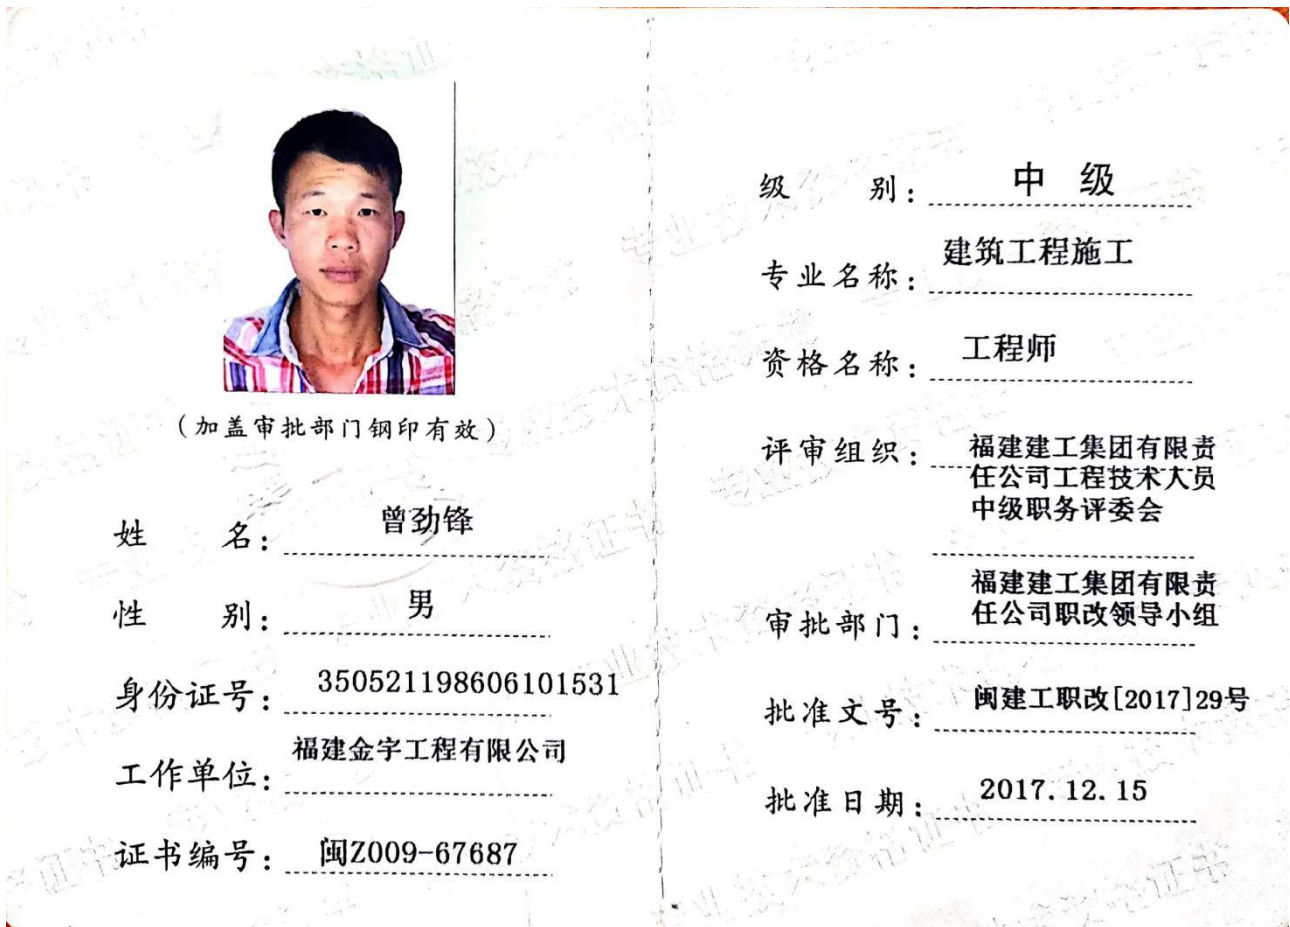 (加盖审批部门钢印有效)
姓 名: 曾劲锋
性 别: 男
身份证号: 350521198606101531
工作单位: 福建金宇工程有限公司
证书编号: 闽Z009-67687
级 别: 中 级
专业名称: 建筑工程施工
资格名称: 工程师
评审组织: 福建建工集团有限责
任公司工程技术人员
中级职务评委会
审批部门: 福建建工集团有限责
任公司职改领导小组
批准文号: 闽建工职改[2017]29号
批准日期: 2017.12.15